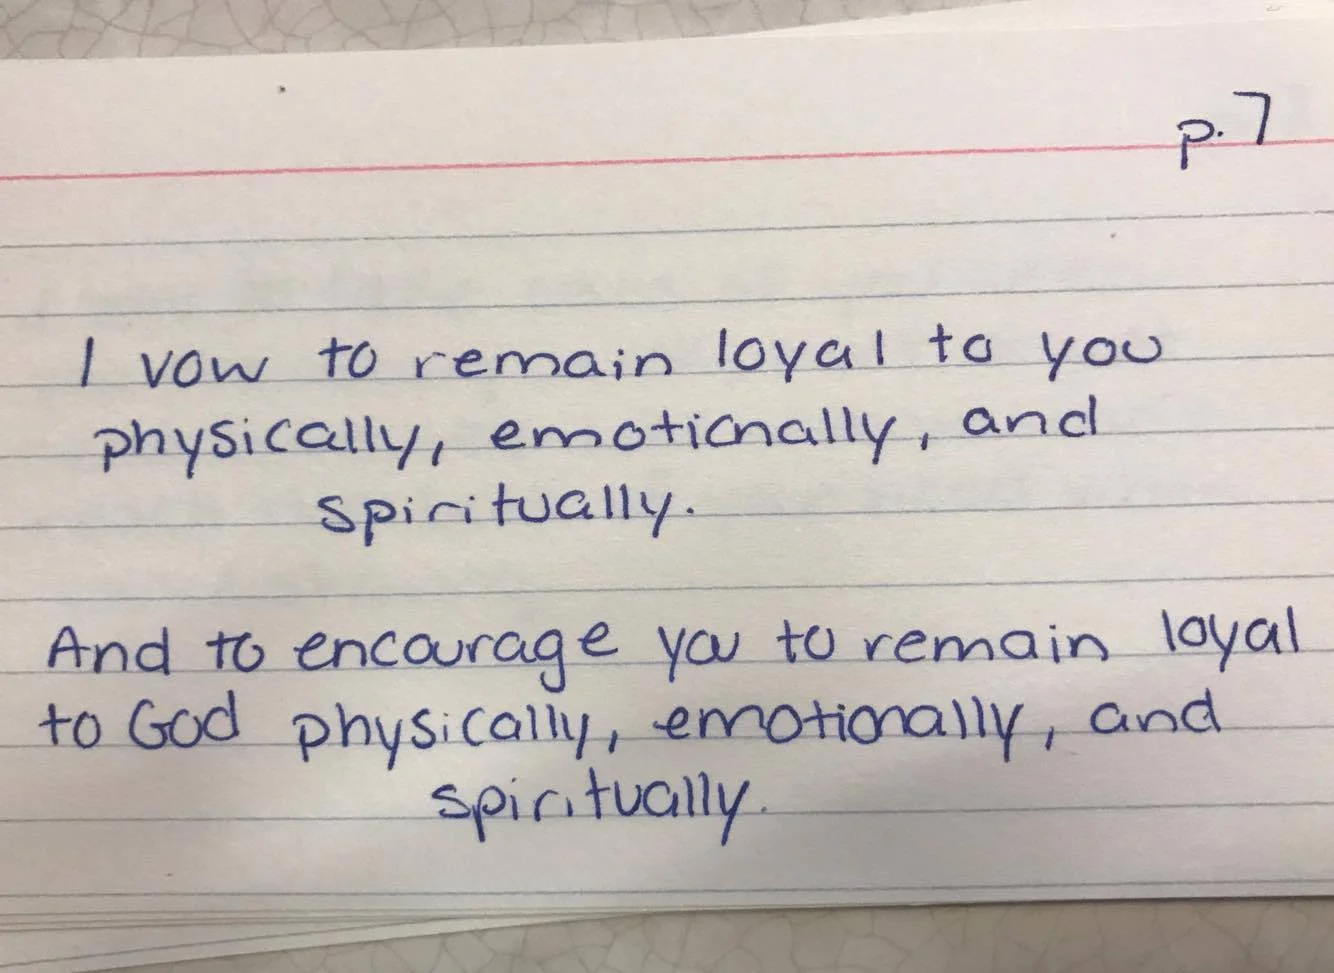 p. 7
I vow to remain loyal to you
physically, emotionally, and
spiritually.
And to encourage you to remain loyal
to God physically, emotionally, and
spiritually.